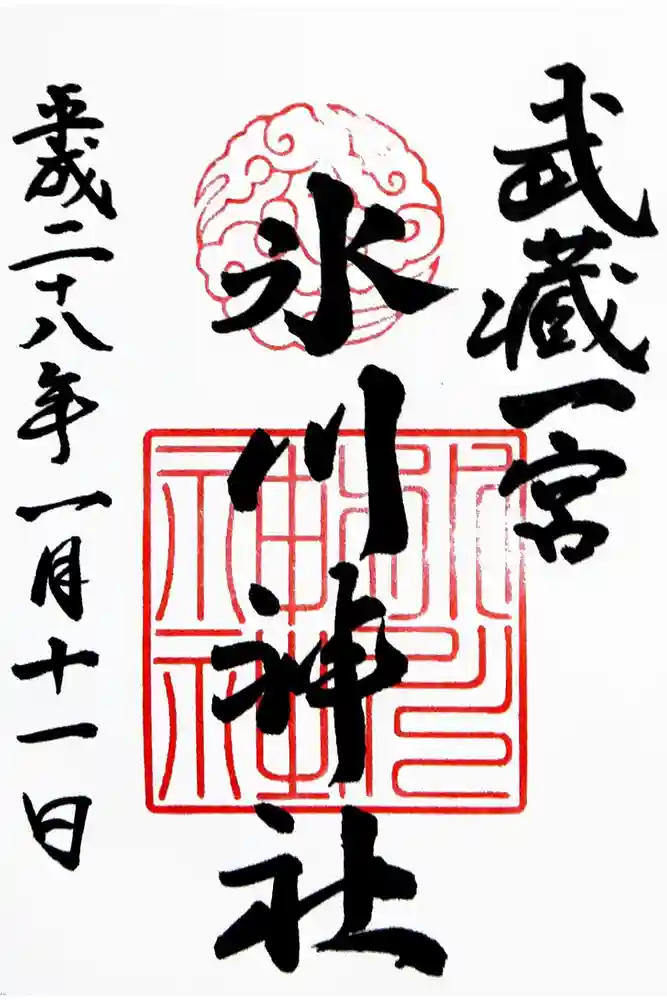 武蔵一宮
氷川神社
平成二十八年一月十一日
氷川
神社